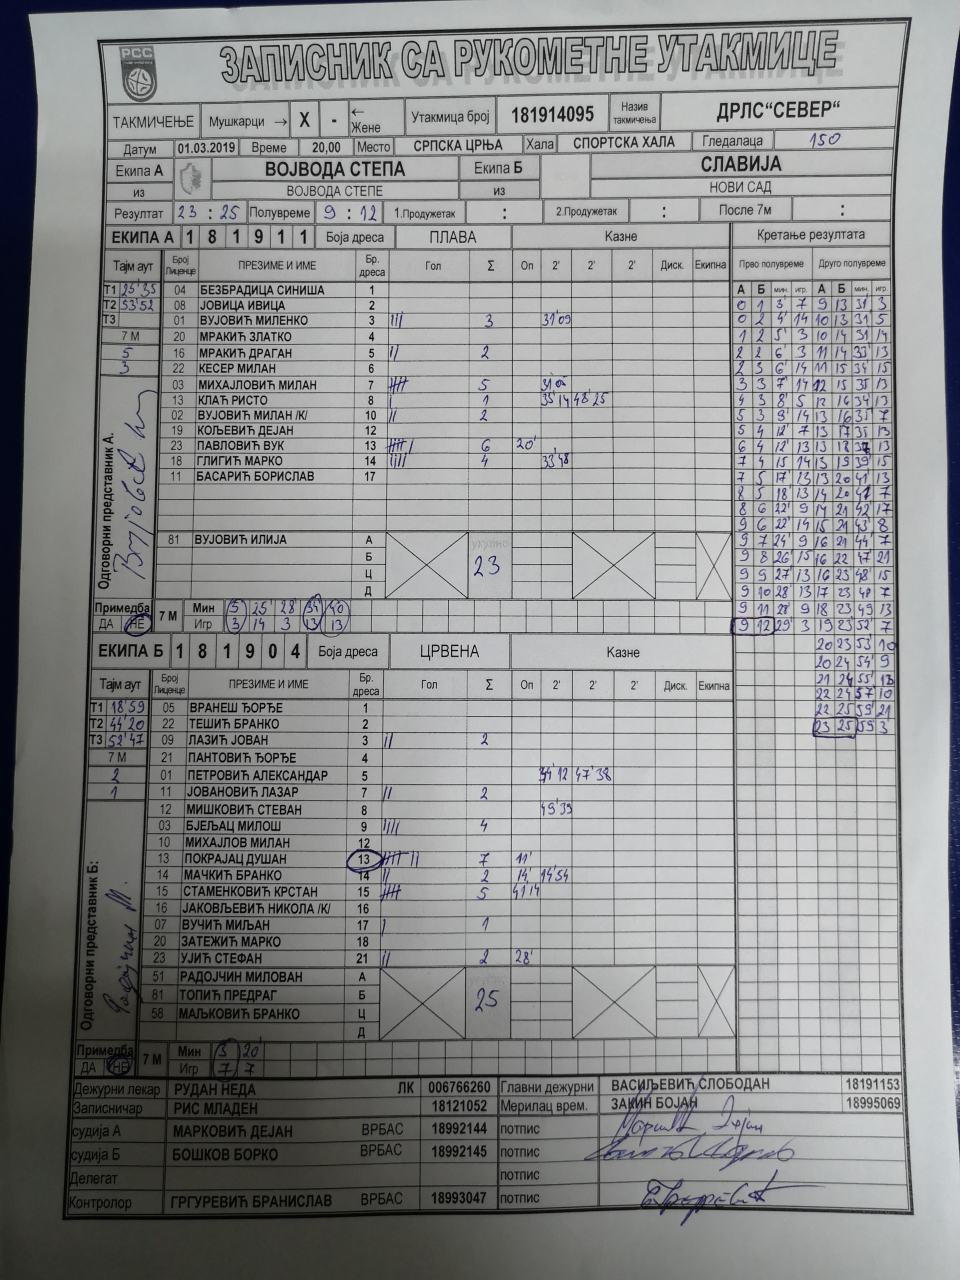 РСС
ЗАПИСНИК СА РУКОМЕТНЕ УТАКМИЦЕ
ТАКМИЧЕЊЕ Мушкарци → X - ← Жене Утакмица број 181914095 Назив такмичења ДРЛС"СЕВЕР"
Датум 01.03.2019 Време 20,00 Место СРПСКА ЦРЊА Хала СПОРТСКА ХАЛА Гледалаца 150
Екипа А ВОЈВОДА СТЕПА Екипа Б СЛАВИЈА
из ВОЈВОДЕ СТЕПЕ из НОВИ САД
Резултат 23 : 25 Полувреме 9 : 12 1.Продужетак : 2.Продужетак : После 7м :
ЕКИПА А 1 8 1 9 1 1 Боја дреса ПЛАВА Казне Кретање резултата
Тајм аут Број Лиценце ПРЕЗИМЕ И ИМЕ Бр. дреса Гол Σ Оп 2' 2' 2' Диск. Екипна Прво полувреме Друго полувреме
А Б мин. игр. А Б мин. игр.
Т1 25'35 04 БЕЗБРАДИЦА СИНИША 1
Т2 53'52 08 ЈОВИЦА ИВИЦА 2
Т3 01 ВУЈОВИЋ МИЛЕНКО 3 /// 3 31'09
7 М 20 МРАКИЋ ЗЛАТКО 4
5 16 МРАКИЋ ДРАГАН 5 // 2
3 22 КЕСЕР МИЛАН 6
03 МИХАЈЛОВИЋ МИЛАН 7 5
13 КЛАЋ РИСТО 8 / 1 35'14 48'25
02 ВУЈОВИЋ МИЛАН /К/ 10 // 2
19 КОЉЕВИЋ ДЕЈАН 12
23 ПАВЛОВИЋ ВУК 13 6 20'
18 ГЛИГИЋ МАРКО 14 //// 4 33'48
11 БАСАРИЋ БОРИСЛАВ 17
81 ВУЈОВИЋ ИЛИЈА А
Б
Ц
Д
укупно 23
Одговорни представник А.
Примедба ДА НЕ
7 М Мин 5 25' 28' 34' 40
Игр 3 14 3 13 13
0 1 3' 7 9 13 31' 3
0 2 4' 14 10 13 31 5
1 2 5' 3 10 14 31 14
2 2 6' 3 11 14 33' 13
2 3 6' 14 11 15 34' 15
3 3 7' 14 12 15 35 13
4 3 8' 5 12 16 34 13
5 3 9' 14 13 16 35' 7
5 4 12' 7 13 17 35 13
6 4 12' 13 13 18 13
7 4 15 14 13 19 39' 15
7 5 17' 13 13 20 41' 13
8 5 18 13 14 20 7
8 6 22' 9 14 21 42' 17
9 6 22' 14 15 21 43' 8
9 7 24' 9 16 21 44' 7
9 8 26' 15 16 22 47 21
9 9 27' 13 16 23 48' 15
9 10 28' 13 17 23 48 7
9 11 28' 9 18 23 49 13
9 12 29' 3 19 23 52' 7
20 23 53' 10
20 24 54' 9
21 24 55' 13
22 24 57 10
22 25 59' 21
23 25 59 3
ЕКИПА Б 1 8 1 9 0 4 Боја дреса ЦРВЕНА Казне
Тајм аут Број Лиценце ПРЕЗИМЕ И ИМЕ Бр. дреса Гол Σ Оп 2' 2' 2' Диск. Екипна
Т1 18'59 05 ВРАНЕШ ЂОРЂЕ 1
Т2 44'20 22 ТЕШИЋ БРАНКО 2
Т3 52'47 09 ЛАЗИЋ ЈОВАН 3 // 2
7 М 21 ПАНТОВИЋ ЂОРЂЕ 4
2 01 ПЕТРОВИЋ АЛЕКСАНДАР 5 34'12 47'38
1 11 ЈОВАНОВИЋ ЛАЗАР 7 // 2
12 МИШКОВИЋ СТЕВАН 8 49'39
03 БЈЕЉАЦ МИЛОШ 9 //// 4
10 МИХАЈЛОВ МИЛАН 12
13 ПОКРАЈАЦ ДУШАН 13 7 11'
14 МАЧКИЋ БРАНКО 14 // 2 14' 14'54
15 СТАМЕНКОВИЋ КРСТАН 15 5 41'14
16 ЈАКОВЉЕВИЋ НИКОЛА /К/ 16
07 ВУЧИЋ МИЉАН 17 / 1
20 ЗАТЕЖИЋ МАРКО 18
23 УЈИЋ СТЕФАН 21 // 2 28'
51 РАДОЈЧИН МИЛОВАН А
81 ТОПИЋ ПРЕДРАГ Б
58 МАЉКОВИЋ БРАНКО Ц
Д
25
Одговорни представник Б:
Примедба ДА НЕ
7 М Мин 3 20'
Игр 7 7
Дежурни лекар РУДАН НЕДА ЛК 006766260 Главни дежурни ВАСИЉЕВИЋ СЛОБОДАН 18191153
Записничар РИС МЛАДЕН 18121052 Мерилац врем. ЗАКИН БОЈАН 18995069
судија А МАРКОВИЋ ДЕЈАН ВРБАС 18992144 потпис
судија Б БОШКОВ БОРКО ВРБАС 18992145 потпис
Делегат потпис
Контролор ГРГУРЕВИЋ БРАНИСЛАВ ВРБАС 18993047 потпис